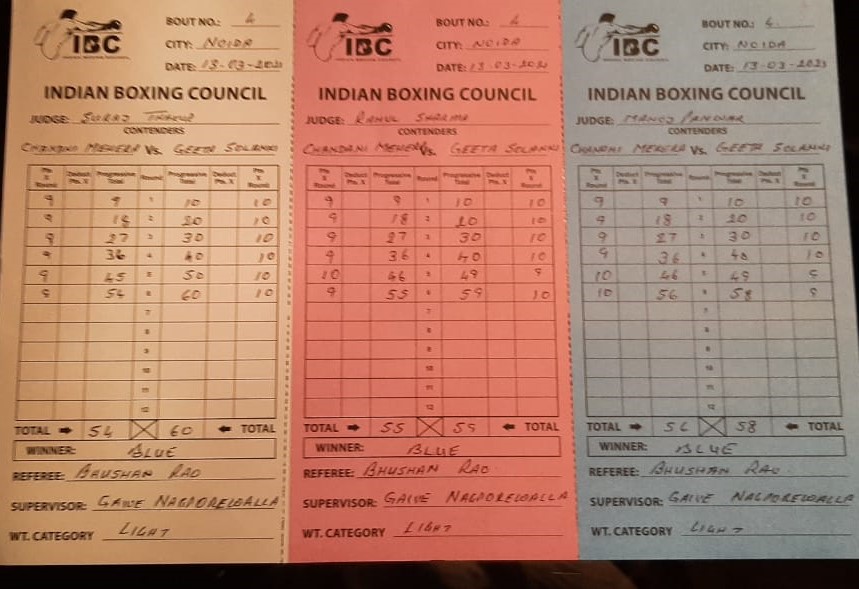 IBC
INDIAN BOXING COUNCIL
BOUT NO.: 4
CITY: NOIDA
DATE: 13-03-2021
INDIAN BOXING COUNCIL
JUDGE: SURAJ
CONTENDERS
CHANDNI MEHERA Vs. GEETA SOLANKI
Pts X Round Deduct Pts. X Progressive Total Round Progressive Total Deduct Pts. X Pts X Round
9 9 1 10 10
9 18 2 20 10
9 27 3 30 10
9 36 4 40 10
9 45 5 50 10
9 54 6 60 10
7
8
9
10
11
12
TOTAL 54 60 TOTAL
WINNER: BLUE
REFEREE: BHUSHAN RAO
SUPERVISOR: GAIVE NAGPOREWALLA
WT. CATEGORY LIGHT
IBC
INDIAN BOXING COUNCIL
BOUT NO.: 4
CITY: NOIDA
DATE: 13-03-2021
INDIAN BOXING COUNCIL
JUDGE: RAHUL SHARMA
CONTENDERS
CHANDANI MEHERA Vs. GEETA SOLANKI
Pts X Round Deduct Pts. X Progressive Total Round Progressive Total Deduct Pts. X Pts X Round
9 9 1 10 10
9 18 2 20 10
9 27 3 30 10
9 36 4 40 10
10 46 5 49 9
9 55 6 59 10
7
8
9
10
11
12
TOTAL 55 59 TOTAL
WINNER: BLUE
REFEREE: BHUSHAN RAO
SUPERVISOR: GAIVE NAGPOREWALLA
WT. CATEGORY LIGHT
IBC
INDIAN BOXING COUNCIL
BOUT NO.: 4
CITY: NOIDA
DATE: 13-03-2021
INDIAN BOXING COUNCIL
JUDGE: MANOJ PANWAR
CONTENDERS
CHANDNI MEHERA Vs. GEETA SOLANKI
Pts X Round Deduct Pts. X Progressive Total Round Progressive Total Deduct Pts. X Pts X Round
9 9 1 10 10
9 18 2 20 10
9 27 3 30 10
9 36 4 40 10
10 46 5 49 9
10 56 6 58 9
7
8
9
10
11
12
TOTAL 56 58 TOTAL
WINNER: BLUE
REFEREE: BHUSHAN RAO
SUPERVISOR: GAIVE NAGPOREWALLA
WT. CATEGORY LIGHT